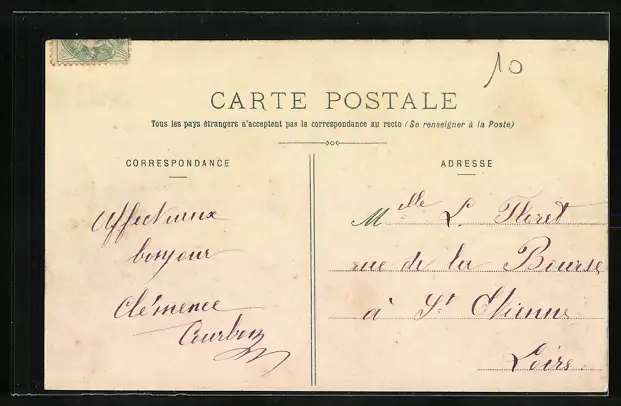 10
CARTE POSTALE
Tous les pays étrangers n'acceptent pas la correspondance au recto (Se renseigner à la Poste)
CORRESPONDANCE
Affectueux
bonjour
Clémence
Courbon
ADRESSE
Melle L. Floret
rue de la Bourse
à St Etienne
Loire